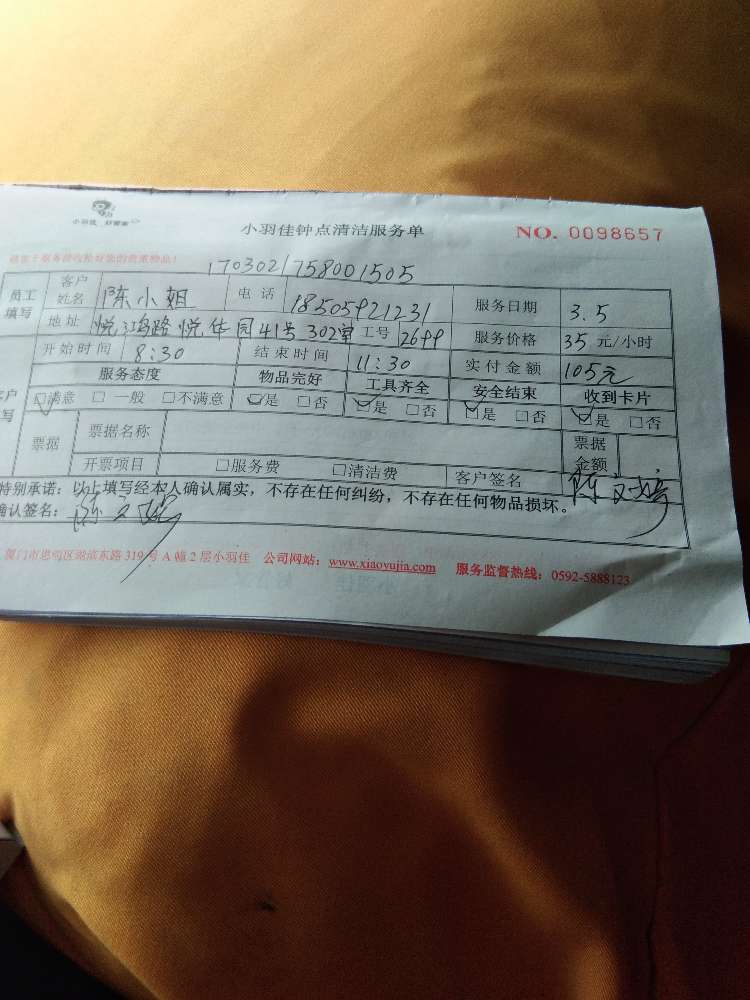 小羽佳 好管家
小羽佳钟点清洁服务单 NO. 0098657
1703021758001505
员工填写 客户姓名 陈小姐 电话 18505921231 服务日期 3.5
地址 悦华路悦华园41号302室 工号 2699 服务价格 35 元/小时
开始时间 8:30 结束时间 11:30 实付金额 105元
服务态度 物品完好 工具齐全 安全结束 收到卡片
☑满意 □ 一般 □不满意 ☑是 □否 ☑是 □否 ☑是 □否 ☑是 □否
票据 票据名称 票据金额
开票项目 □服务费 □清洁费 客户签名 陈
特别承诺:以上填写经本人确认属实,不存在任何纠纷,不存在任何物品损坏。
确认签名: 陈
厦门市思明区湖滨东路 319 号 A 幢 2 层小羽佳 公司网站:www.xiaoyujia.com 服务监督热线:0592-5888123